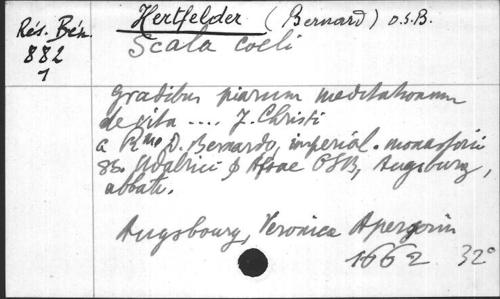 Rés. Bén.
882
1
Hertfelder (Bernard) O.S.B.
Scala coeli
gradibus piarum meditationum
de vita .... J. Christi
a Rmo D. Bernardo, imperial. monasterii
SS. Udalrici & Afrae OSB, Augsburg,
abbate.
Augsbourg, Veronica Apergerin
1662 32°